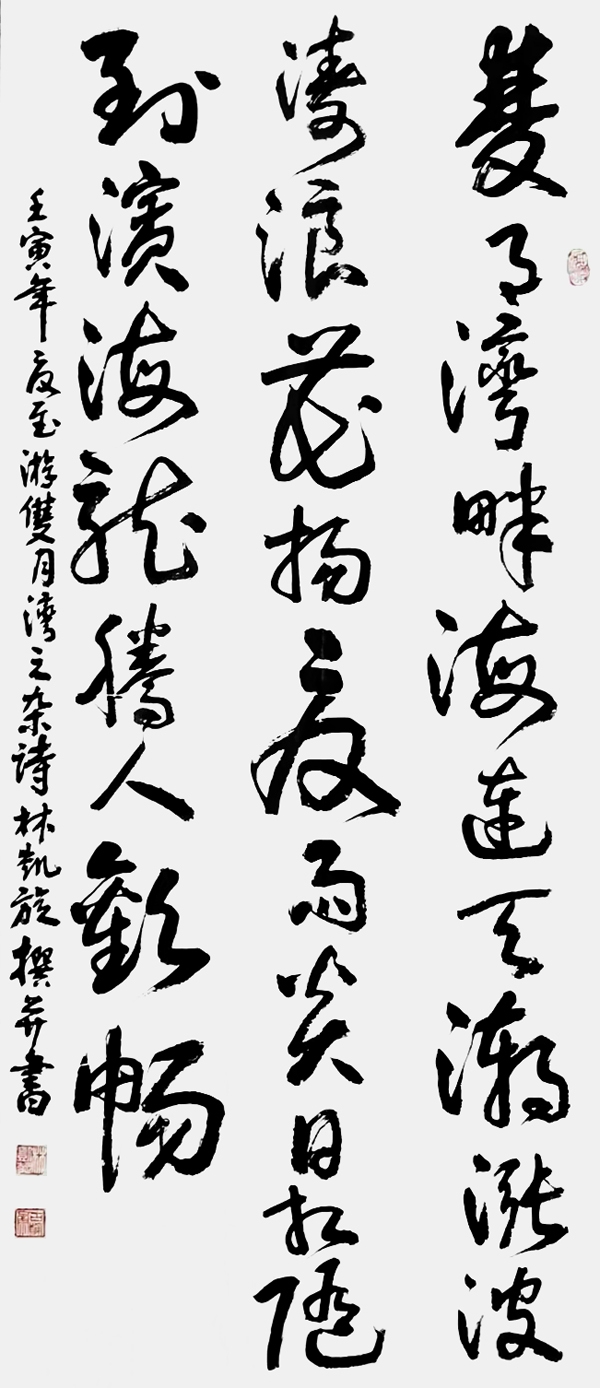 雙月灣畔海連天潮漲波
濤浪花揚夏雨炎日相隨
到濱海龍騰人歡暢
壬寅年夏至游雙月灣之杂詩林凱旋撰并書